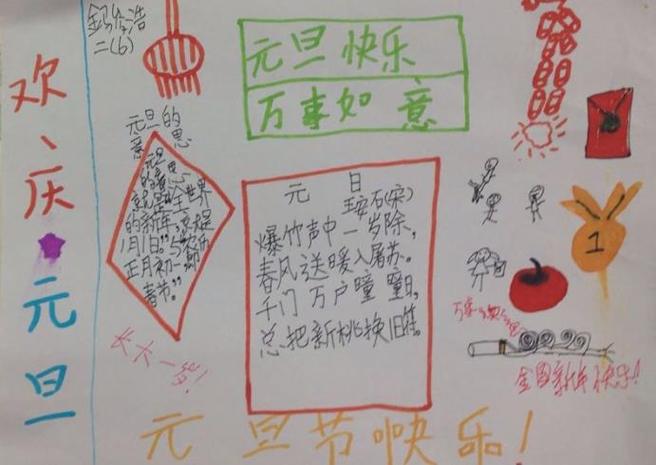 欢、庆
元旦
二(6)
元旦的
意思
元旦
的意思
就是“全世界
的新年
1月1日。”
正月初一
春节。”
长大一岁！
元旦快乐
万事如意
元 日
王安石(宋)
爆竹声中一岁除，
春风送暖入屠苏。
千门万户瞳瞳日，
总把新桃换旧符。
1
全国新年快乐！
元旦节快乐！